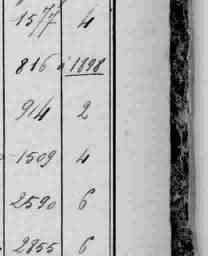 1577 4
816 à 1898
914 2
1509 4
2590 6
2855 6